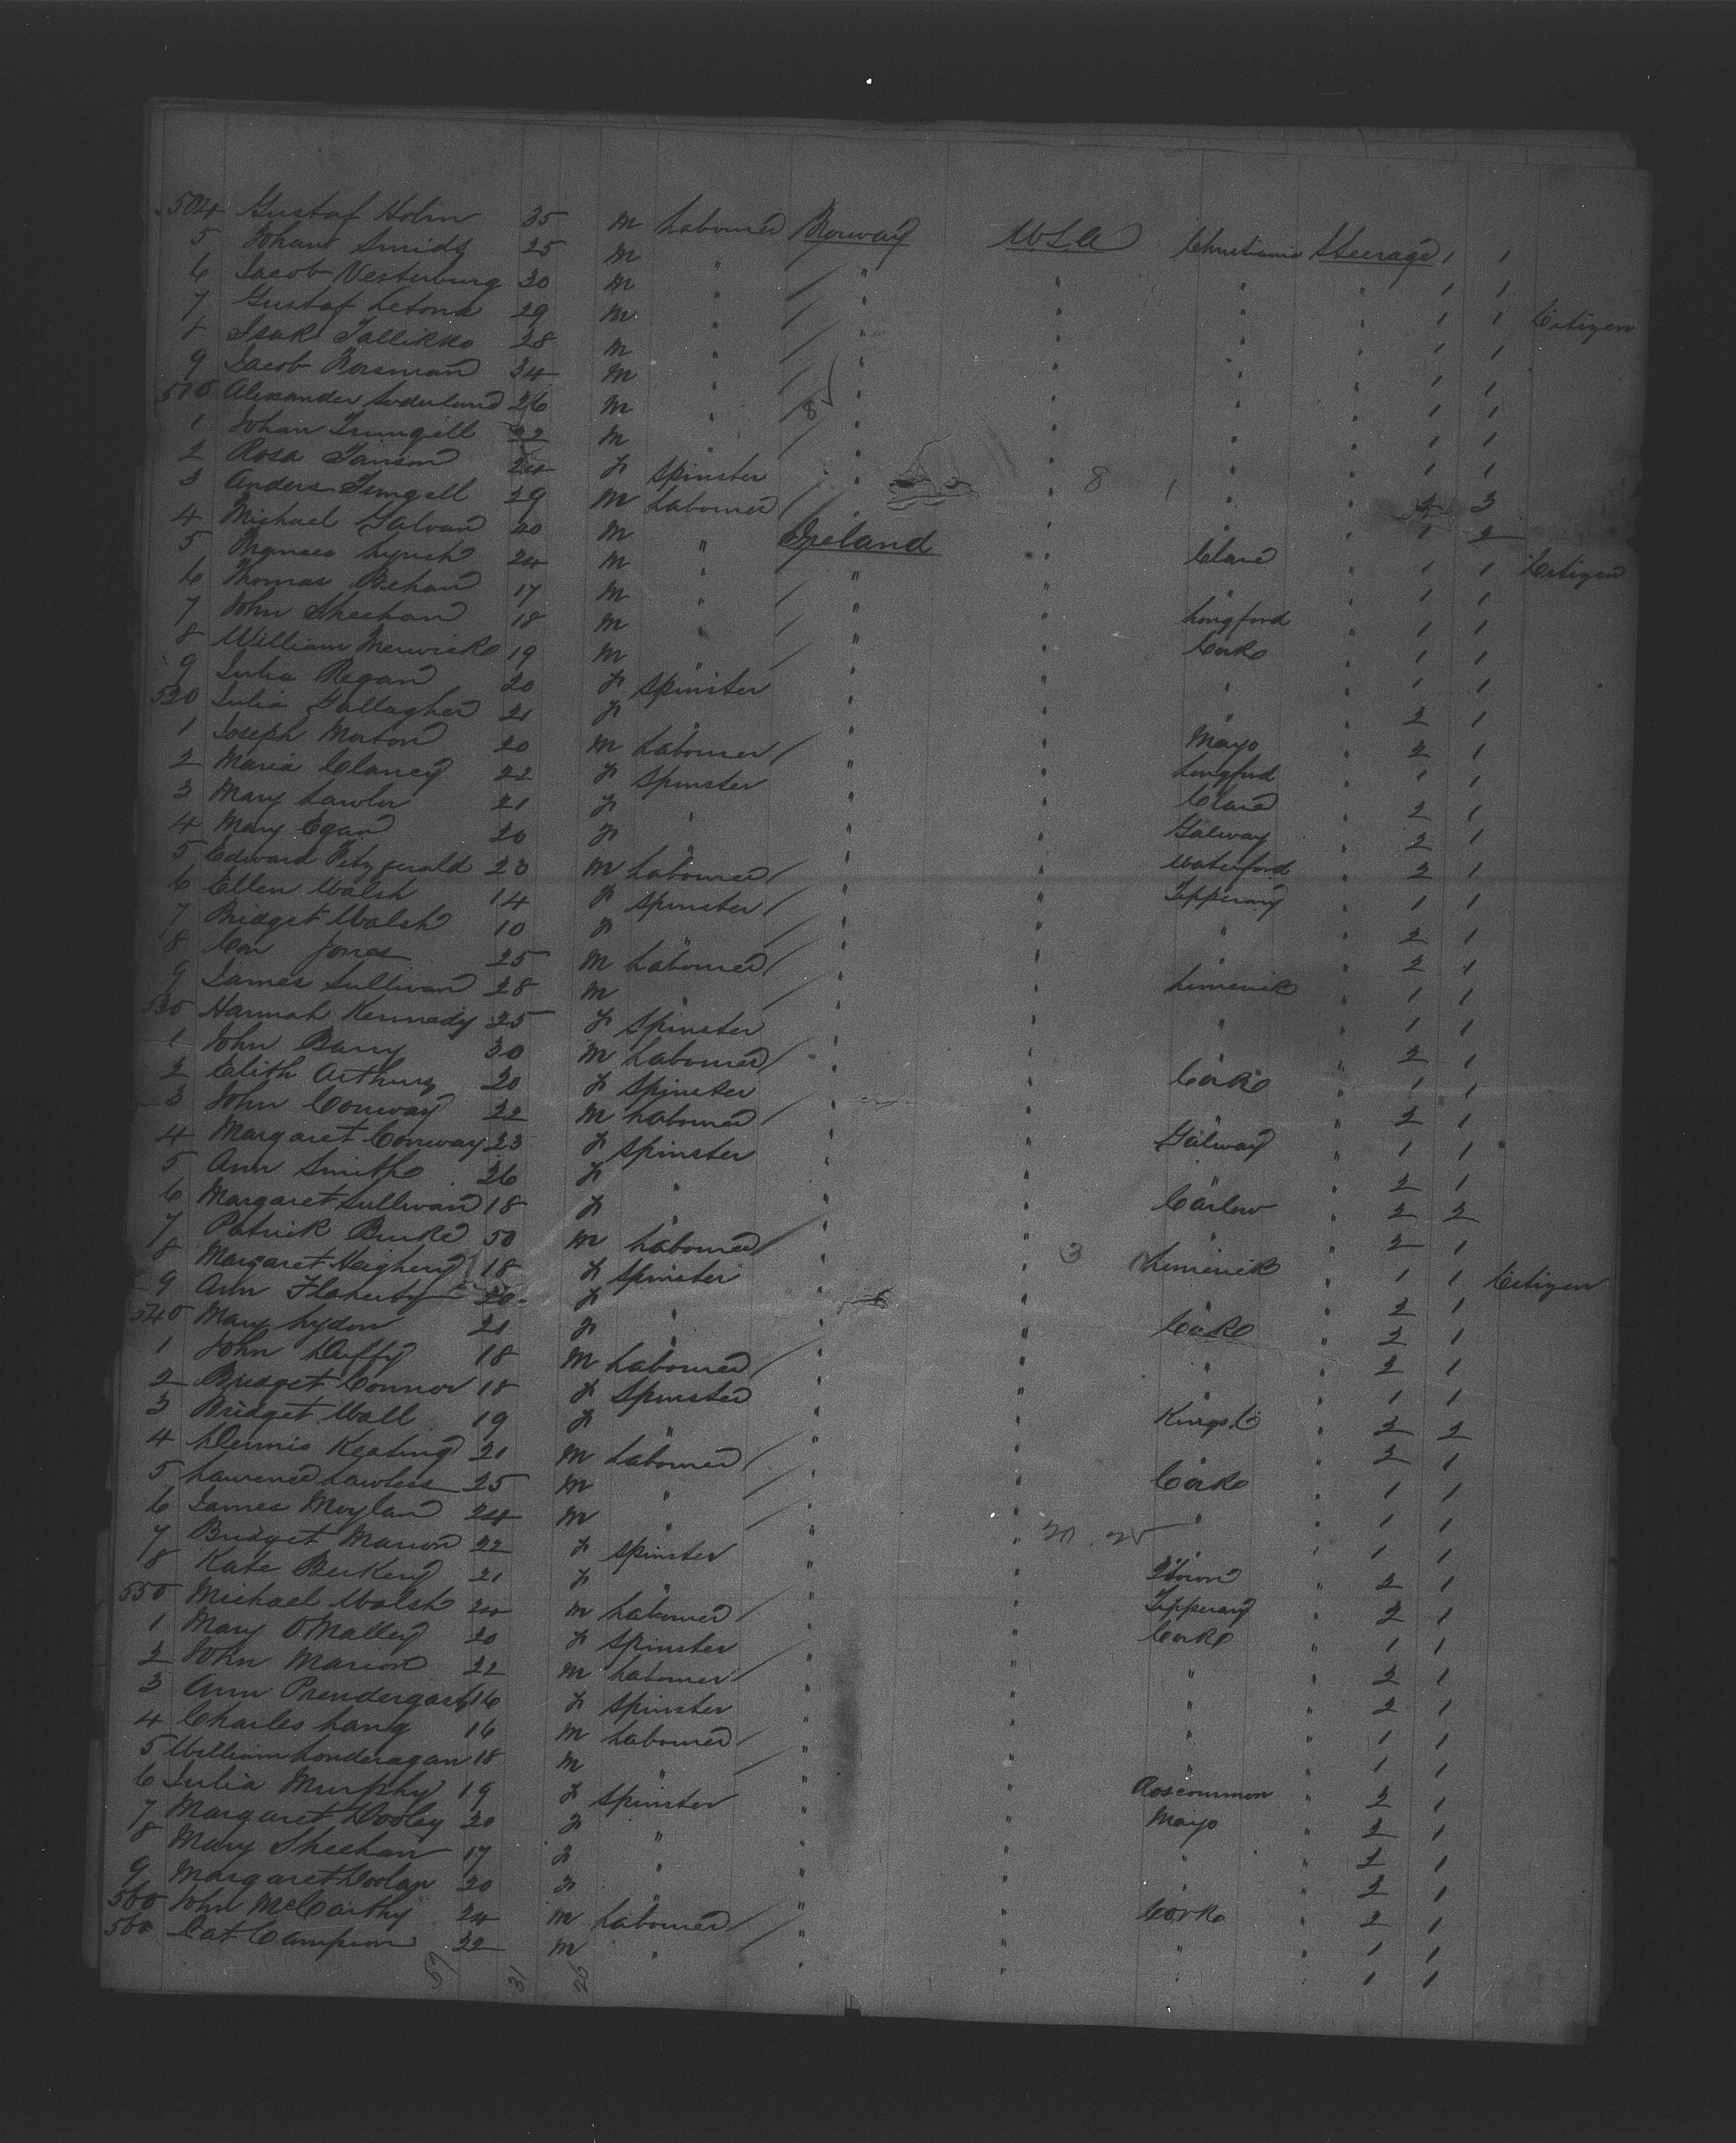 504 Gustaf Holm 35 M Labourer Norway U S A Christiania Steerage 1 1
5 Johans Smids 25 M " / " " " " 1 1
6 Jacob Vesterburg 30 M " / " " " " 1 1 Citizen
7 Gustaf 29 M " / " " " " 1 1
8 Isak Tallikko 28 M " / " " " " 1 1
9 Jacob Rosman 34 M " / " " " " 1 1
510 Alexander Soderlund 26 M " / 8 " " " " 1 1
1 Johan 22 M " / " " " " 1 1
2 Rosa Janson 24 F Spinster " " 8 1 " " 2 3
3 Anders 29 M Labourer / " " " " 1 2
4 Michael Galvan 40 M " Ireland " Clare " 1 1 Citizen
5 Lynch 24 M " / " " " " 1 1
6 Thomas Behan 17 M " / " " Longford " 1 1
7 John Sheehan 18 M " / " " Cork " 1 1
8 William Merwick 19 M " / " " " " 1 1
9 Julia Regan 20 F Spinster " " " " 2 1
520 Julia Gallagher 21 F " " " Mayo " 2 1
1 Joseph Morton 20 M Labourer / " " Longford " 1 1
2 Maria Clancy 22 F Spinster " " Clare " 2 1
3 Mary Lawlor 21 F " " " Galway " 2 1
4 Mary Egan 20 F " " " Waterford " 2 1
5 Edward Fitzgerald 23 M Labourer / " " Tipperary " 1 1
6 Ellen Walsh 14 F Spinster / " " " " 2 1
7 Bridget Walsh 10 F " / " " " " 2 1
8 Con Jones 25 M Labourer / " " Limerick " 1 1
9 James Sullivan 28 M " / " " " " 1 1
530 Hannah Kennedy 25 F Spinster " " " " 2 1
1 John Barry 30 M Labourer / " " Cork " 1 1
2 Elith Arthurs 20 F Spinster " " " " 2 1
3 John Conway 22 M Labourer / " " Galway " 1 1
4 Margaret Conway 23 F Spinster " " " " 2 1
5 Ann Smith 26 F " " " Carlow " 2 2
6 Margaret Sullivan 18 F " " " " " 2 1
7 Patrick Burke 50 M Labourer / " " 3 Limerick " 1 1 Citizen
8 Margaret Heighery 18 F Spinster " " " " 2 1
9 Ann Flaherty 20 F " " " Cork " 2 1
540 Mary Lydon 21 F " " " " " 2 1
1 John Duffy 18 M Labourer / " " " " 1 1
2 Bridget Connor 18 F Spinster " " Kings Co " 2 2
3 Bridget Wall 19 F " " " " " 2 1
4 Dennis Keating 21 M Labourer / " " Cork " 1 1
5 Laurence Lawless 25 M " / " " " " 1 1
6 James Moylan 24 M " / " 20 25 " " 1 1
7 Bridget Marion 22 F Spinster " " " 2 1
8 Kate Berkery 21 F " " " Tipperary " 2 1
550 Michael Walsh 24 M Labourer / " " Cork " 1 1
1 Mary O'Malley 20 F Spinster " " " " 2 1
2 John Marion 22 M Labourer / " " " " 2 1
3 Ann Prendergast 16 F Spinster " " " " 1 1
4 Charles Lang 16 M Labourer / " " " " 1 1
5 William Londeragan 18 M " / " " Roscommon " 2 1
6 Julia Murphy 19 F Spinster " " Mayo " 2 1
7 Margaret Dooley 20 F " " " " " 2 1
8 Mary Sheehan 17 F " " " " " 2 1
9 Margaret Doolan 20 F " " " Cork " 2 1
560 John McCarthy 24 M Labourer / " " " " 1 1
560 Pat Campion 22 M " / " " " " 1 1
57 31 26